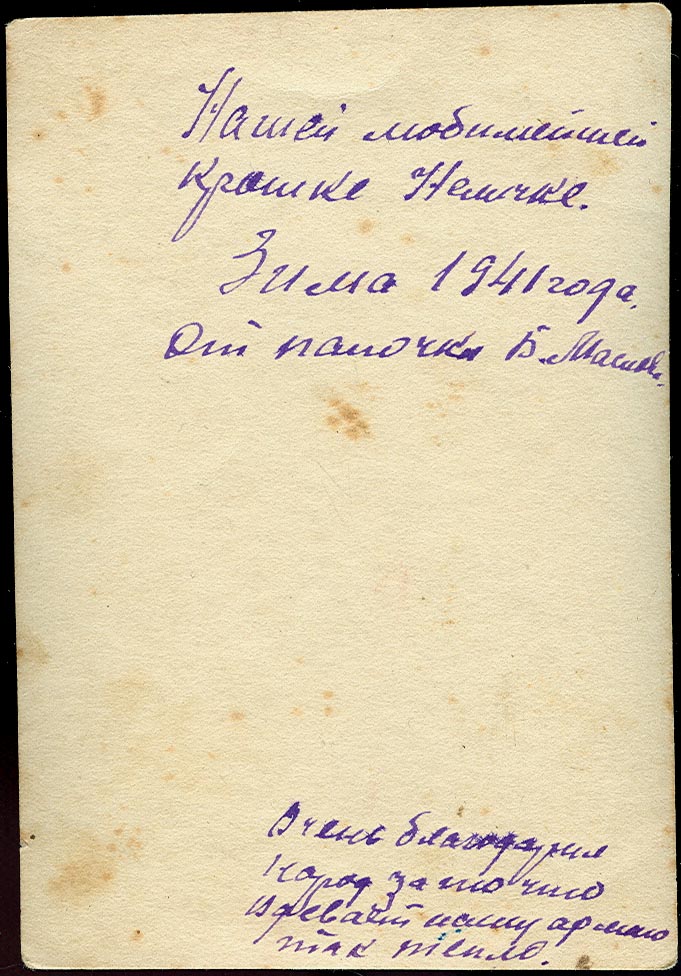 Нашей любимейшей
крошке Неличке.
Зима 1941 года.
От папочки Б.
Очень благодарил
народ за то что
одевают нашу армию
так тепло.